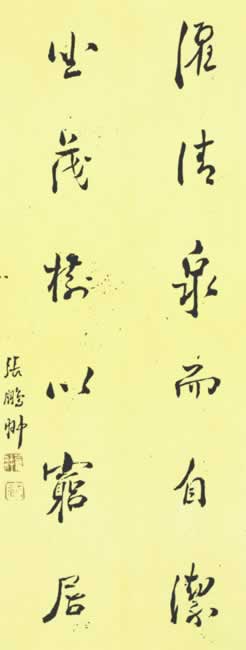 濯清泉而自潔
坐茂樹以窮居
張鵬翀